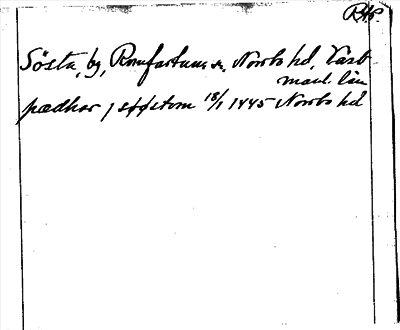 RAp.
Sösta, by, Romfartuna sn, Norrbo hd, Väst
manl. län
pædhar j søøstom 18/1 1445 Norrbo hd